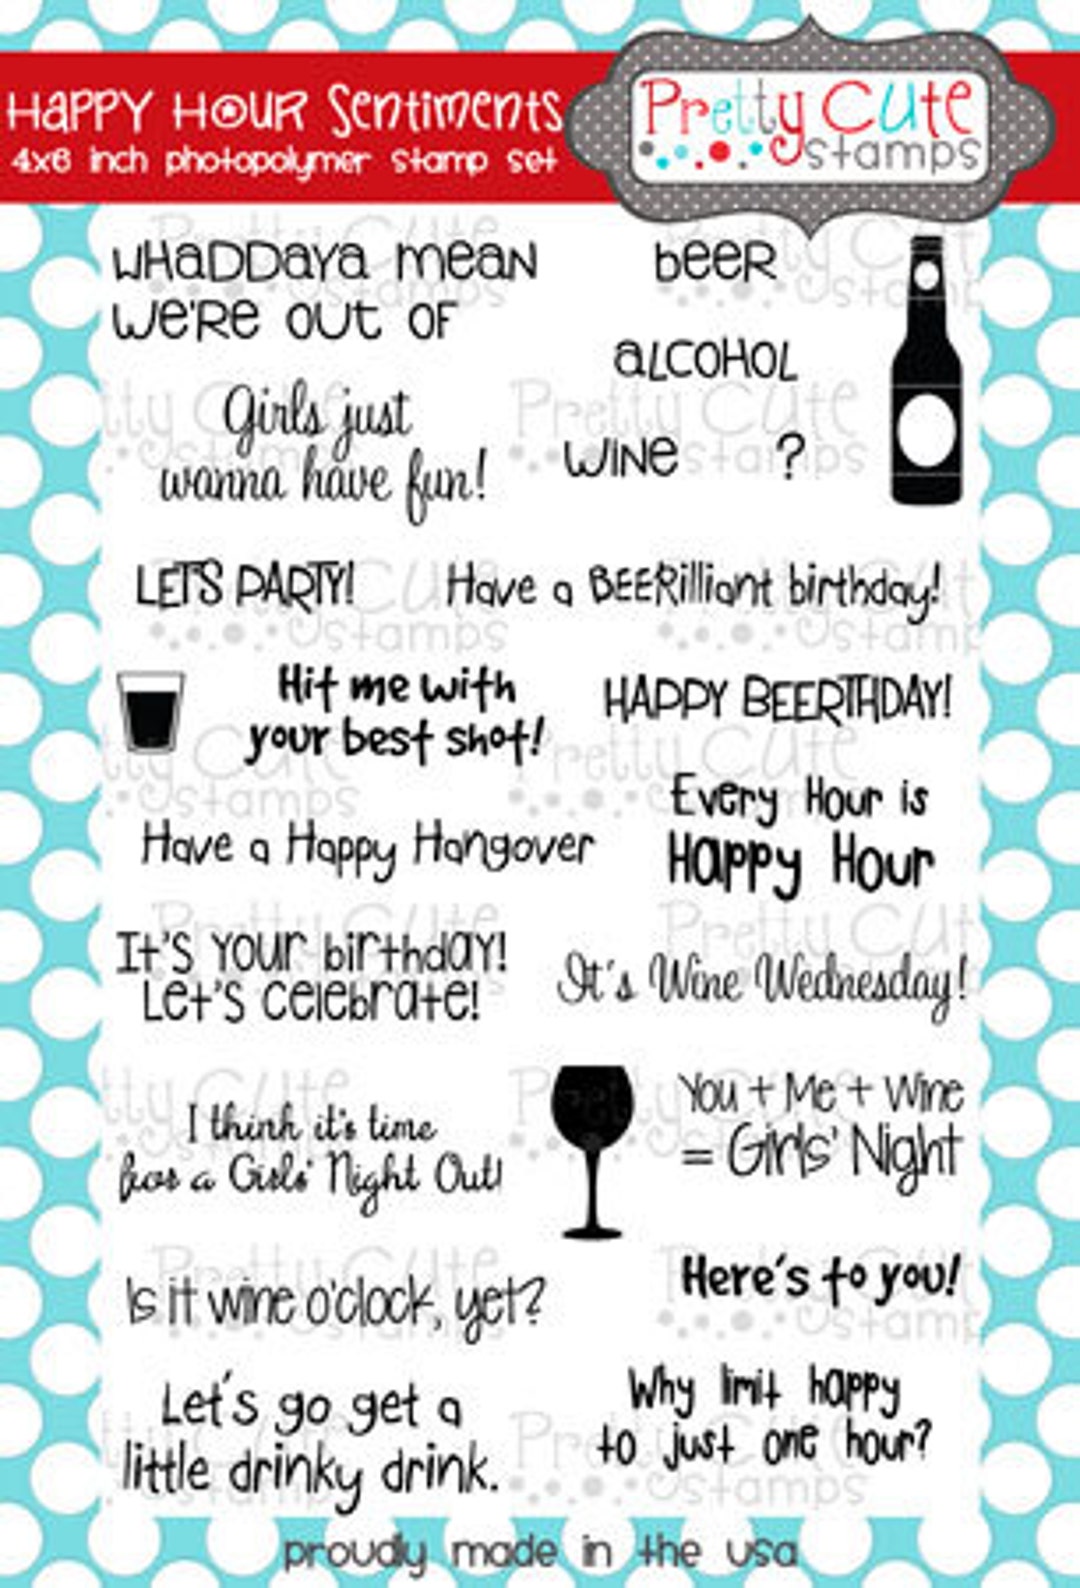 Happy Hour Sentiments
4x6 inch photopolymer stamp set
Pretty Cute
stamps
WHADDAYA MEAN
WE'RE OUT OF
BEER
ALCOHOL
WINE ?
Girls just
wanna have fun!
LET'S PARTY!
Have a BEERilliant birthday!
Hit me with
your best shot!
HAPPY BEERTHDAY!
Have a Happy Hangover
Every Hour is
Happy Hour
It's your birthday!
Let's celebrate!
It's Wine Wednesday!
I think it's time
for a Girls' Night Out!
You + Me + Wine
= Girls' Night
Is it wine o'clock, yet?
Here's to you!
Let's go get a
little drinky drink.
Why limit happy
to just one hour?
proudly made in the usa